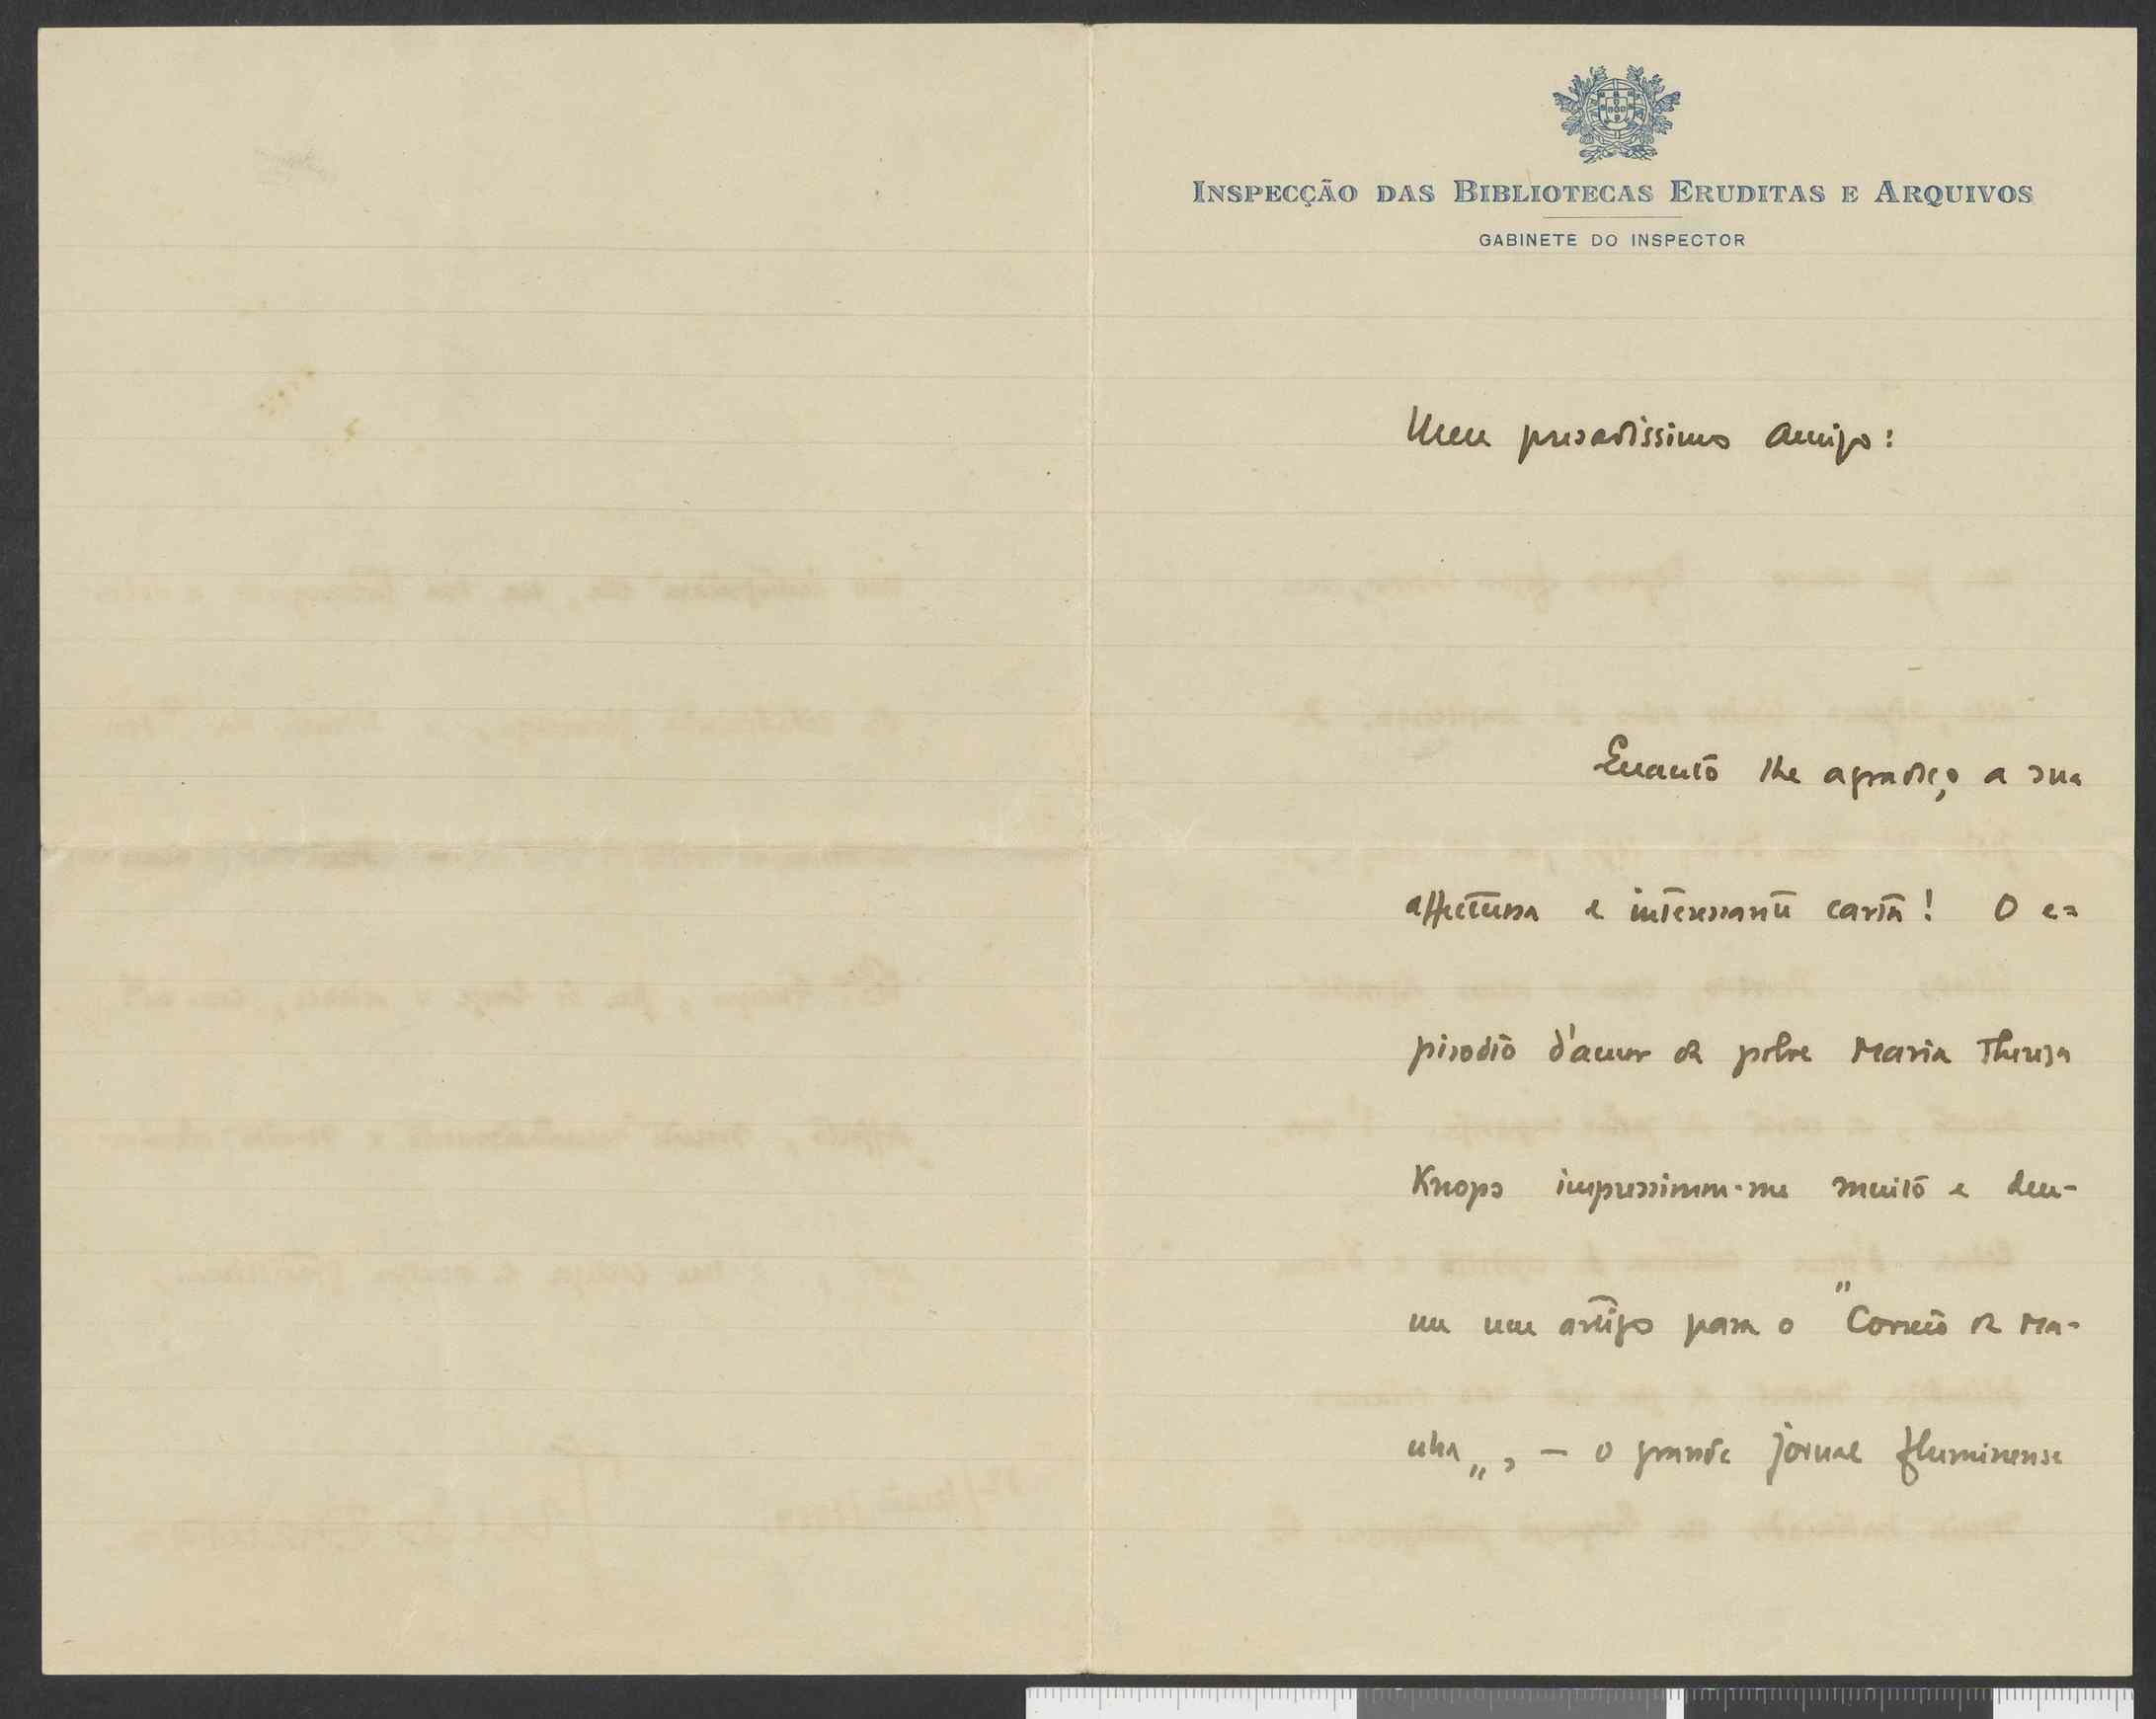 INSPECÇÃO DAS BIBLIOTECAS ERUDITAS E ARQUIVOS
GABINETE DO INSPECTOR
Meu presadissimo amigo:
Quanto lhe agradeço a sua
affectuosa e interessante carta! O e=
pisodio d'amor de pobre Maria Thereza
Knops impressionou-me muito e deu-
me um artigo para o "Correio da Ma-
nhã„, — o grande jornal fluminense